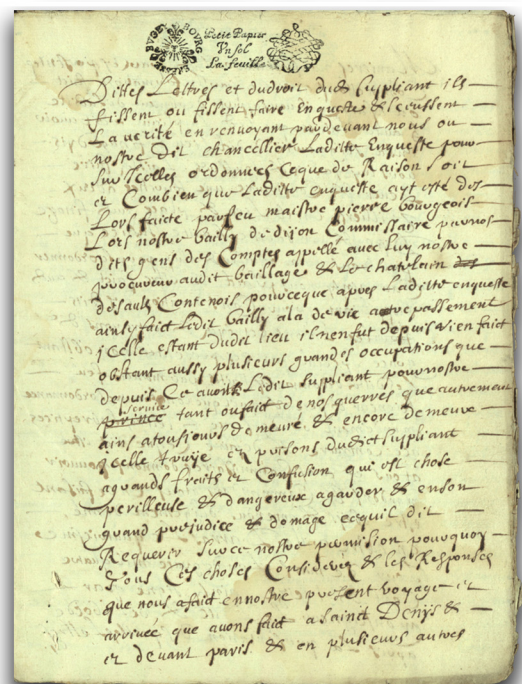 BUGEY BOURG
Petit Papier
Un sol
La feuille
Dittes Lettres et dudroit dudt Supliant ils
fissent ou fissent faire Enqueste & sceussent
La verité en renvoyant pardevant nous ou
nostre dit chancellier Laditte Enqueste pour
sur Icelles ordonner Ceque de Raison soit
et Combien que Laditte enqueste ayt esté des
Lors faicte parfeu maistre pierre bourgeois
Lors nostre bailly de dijon Commissaire parnos
dits gens des Comptes appellé avec luy nostre
procureur audit bailliage & Le chatelain
desaulx Contenois pource que apres Laditte enqueste
ainsy faict Ledit bailly ala de vie atrepassement
jcelle estant dudit lieu ilnenfut depuis rien faict
obstant aussy plusieurs grandes occupations que
depuis Ce avoit Ledit supliant pournostre
prince service tant oufait denos guerres que autrement
ains atousjours demeuré & encore demeure
jcelle et dudict supliant
agrands fraits et Confiction qui est chose
perilleuse & dangereux agarder & enson
grand prejudice & domage cequil dit
Requerir surce nostre provision pourquoy
Nous Ces choses Considerez & les Responses
que nous afaict ennostre present voyage et
arrivée que avons faict a Sainct Denys &
et devant paris & en plusieurs autres